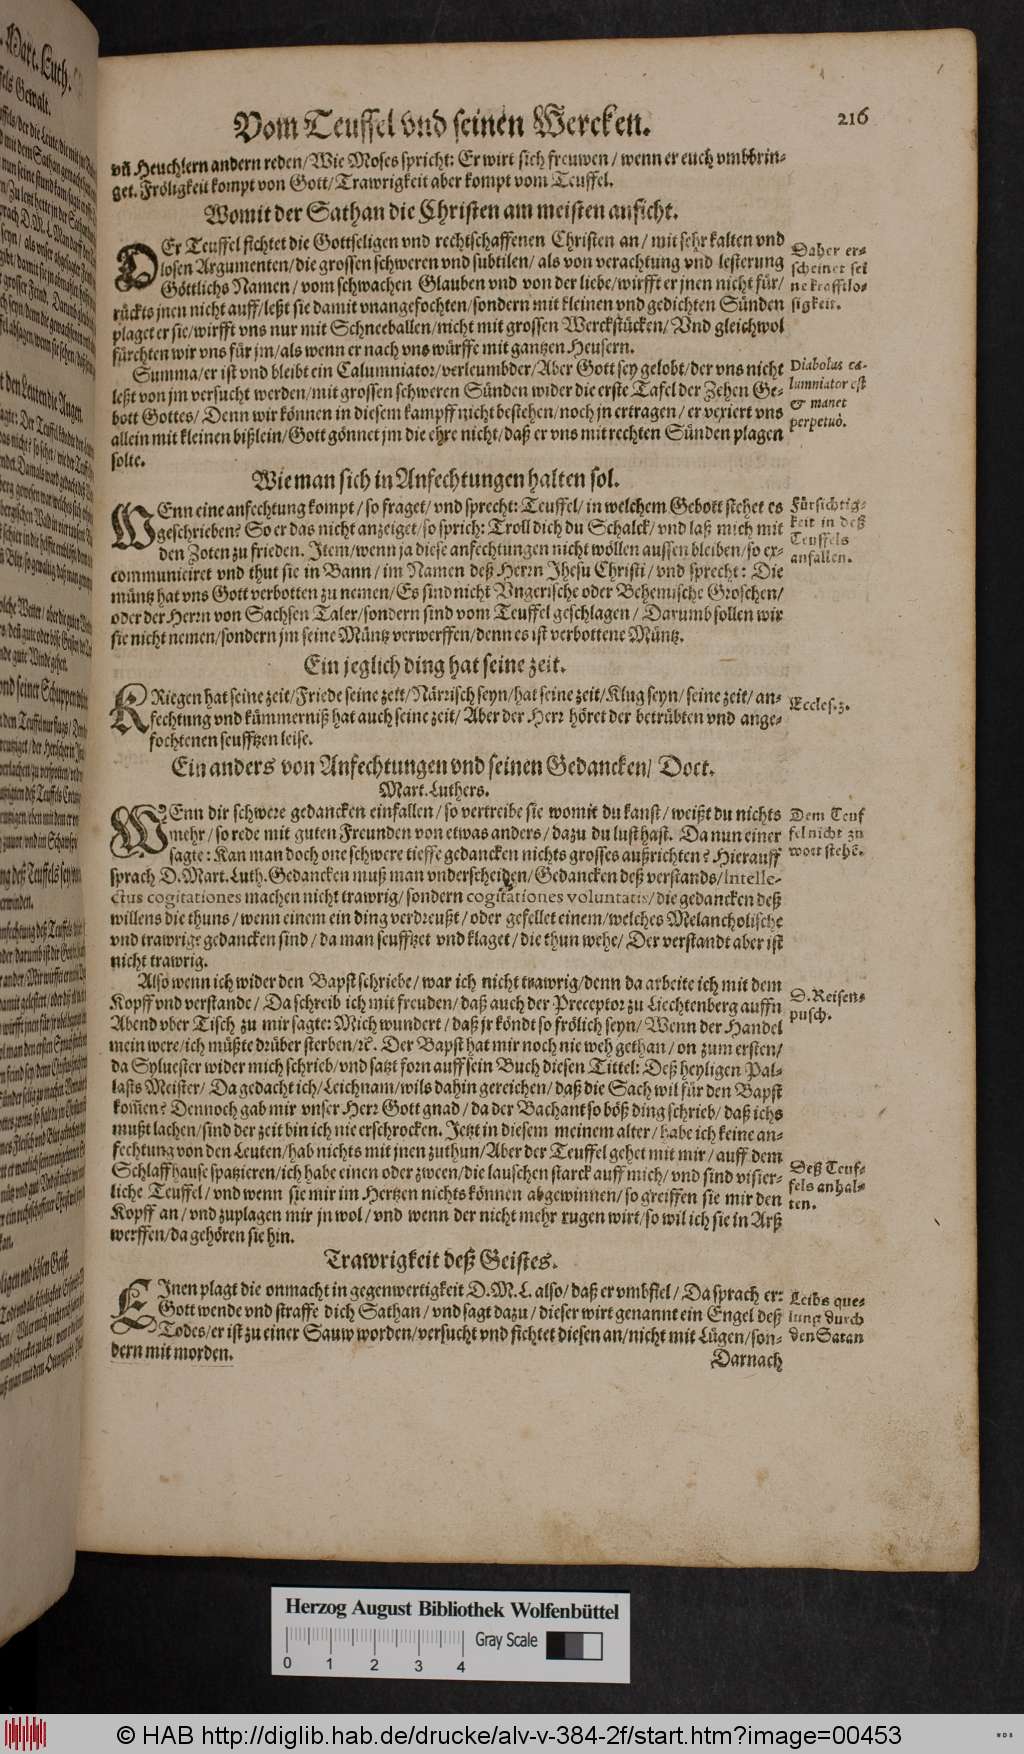 Vom Teuffel vnd seinen Wercken. 216
vñ Heuchlern andern reden/ Wie Moses spricht: Er wirt sich freuwen/ wenn er euch vmbbrin-
get. Fröligkeit kompt von Gott/ Trawrigkeit aber kompt vom Teuffel.
Womit der Sathan die Christen am meisten anficht.
DEr Teuffel fichtet die Gottseligen vnd rechtschaffenen Christen an/ mit sehr kalten vnd
losen Argumenten/ die grossen schweren vnd subtilen/ als von verachtung vnd lesterung
Göttlichs Namen/ vom schwachen Glauben vnd von der liebe/ wirfft er jnen nicht für/
rückts jnen nicht auff/ leßt sie damit vnangefochten/ sondern mit kleinen vnd gedichten Sünden
plaget er sie/ wirfft vns nur mit Schneeballen/ nicht mit grossen Werckstücken/ Vnd gleichwol
fürchten wir vns für jm/ als wenn er nach vns würffe mit gantzen Heusern.
Daher er-
scheinet sei
ne krafftlo-
sigkeit.
Summa/ er ist vnd bleibt ein Calumniator/ verleumbder/ Aber Gott sey gelobt/ der vns nicht
leßt von jm versucht werden/ mit grossen schweren Sünden wider die erste Tafel der Zehen Ge-
bott Gottes/ Denn wir können in diesem kampff nicht bestehen/ noch jn ertragen/ er vexiert vns
allein mit kleinen bißlein/ Gott gönnet jm die ehre nicht/ daß er vns mit rechten Sünden plagen
solte.
Diabolus ca-
lumniator est
& manet
perpetuò.
Wie man sich in Anfechtungen halten sol.
WEnn eine anfechtung kompt/ so fraget/ vnd sprecht: Teuffel/ in welchem Gebott stehet es
geschrieben? So er das nicht anzeiget/ so sprich: Troll dich du Schalck/ vnd laß mich mit
den Zoten zu frieden. Item/ wenn ja diese anfechtungen nicht wöllen aussen bleiben/ so ex-
communiciret vnd thut sie in Bann/ im Namen deß Herrn Jhesu Christi/ vnd sprecht: Die
müntz hat vns Gott verbotten zu nemen/ Es sind nicht Vngerische oder Behemische Groschen/
oder der Herrn von Sachsen Taler/ sondern sind vom Teuffel geschlagen/ Darumb sollen wir
sie nicht nemen/ sondern jm seine Müntz verwerffen/ denn es ist verbottene Müntz.
Fürsichtig-
keit in deß
Teuffels
anfallen.
Ein jeglich ding hat seine zeit.
KRiegen hat seine zeit/ Friede seine zeit/ Närrisch seyn/ hat seine zeit/ Klug seyn/ seine zeit/ an-
fechtung vnd kümmerniß hat auch seine zeit/ Aber der Herr höret der betrübten vnd ange-
fochtenen seufftzen leise.
Eccles. 3.
Ein anders von Anfechtungen vnd seinen Gedancken/ Doct.
Mart. Luthers.
WEnn dir schwere gedancken einfallen/ so vertreibe sie womit du kanst/ weißt du nichts
mehr/ so rede mit guten Freunden von etwas anders/ dazu du lust hast. Da nun einer
sagte: Kan man doch one schwere tieffe gedancken nichts grosses außrichten? Hierauff
sprach D. Mart. Luth. Gedancken muß man vnderscheiden/ Gedancken deß verstands/ Intelle-
ctus cogitationes machen nicht trawrig/ sondern cogitationes voluntatis/ die gedancken deß
willens die thuns/ wenn einem ein ding verdreußt/ oder gefellet einem/ welches Melancholische
vnd trawrige gedancken sind/ da man seufftzet vnd klaget/ die thun wehe/ Der verstandt aber ist
nicht trawrig.
Dem Teuf
fel nicht zu
wort stehē.
Also wenn ich wider den Bapst schriebe/ war ich nicht trawrig/ denn da arbeite ich mit dem
Kopff vnd verstande/ Da schreib ich mit freuden/ daß auch der Preceptor zu Liechtenberg auffn
Abend vber Tisch zu mir sagte: Mich wundert/ daß jr köndt so frölich seyn/ Wenn der Handel
mein were/ ich müßte drüber sterben/ ꝛc. Der Bapst hat mir noch nie weh gethan/ on zum ersten/
da Syluester wider mich schrieb/ vnd satzt forn auff sein Buch diesen Tittel: Deß heyligen Pal-
lasts Meister/ Da gedacht ich/ Leichnam/ wils dahin gereichen/ daß die Sach wil für den Bapst
kom̃en? Dennoch gab mir vnser Herr Gott gnad/ da der Bachant so böß ding schrieb/ daß ichs
mußt lachen/ sind der zeit bin ich nie erschrocken. Jetzt in diesem meinem alter/ habe ich keine an-
fechtung von den Leuten/ hab nichts mit jnen zuthun/ Aber der Teuffel gehet mit mir/ auff dem
Schlaffhause spatzieren/ ich habe einen oder zween/ die lauschen starck auff mich/ vnd sind visier-
liche Teuffel/ vnd wenn sie mir im Hertzen nichts können abgewinnen/ so greiffen sie mir den
Kopff an/ vnd zuplagen mir jn wol/ vnd wenn der nicht mehr tugen wirt/ so wil ich sie in Arß
werffen/ da gehören sie hin.
D. Reisen-
pusch.
Deß Teuf-
fels anhal-
ten.
Trawrigkeit deß Geistes.
EInen plagt die onmacht in gegenwertigkeit D. M. L. also/ daß er vmbfiel/ Da sprach er:
Gott wende vnd straffe dich Sathan/ vnd sagt dazu/ dieser wirt genannt ein Engel deß
Todes/ er ist zu einer Sauw worden/ versucht vnd fichtet diesen an/ nicht mit Lügen/ son-
dern mit morden.
Leibs que-
lung durch
den Satan
Darnach
Herzog August Bibliothek Wolfenbüttel
Gray Scale
0 1 2 3 4
© HAB http://diglib.hab.de/drucke/alv-v-384-2f/start.htm?image=00453